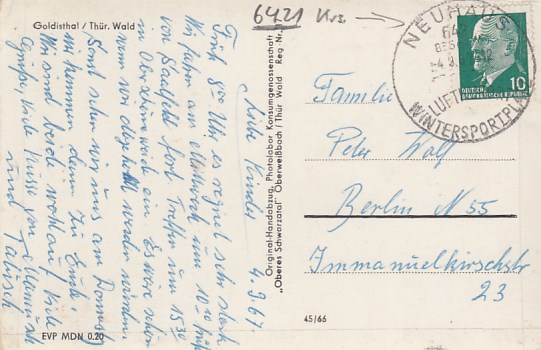 Goldisthal / Thür. Wald
6421 Krs.
NEUHAUS
WINTERSPORTPLATZ
LUFT
DEUTSCHE
DEMOKRATISCHE REPUBLIK
10
4.9.67
Liebe Kinder
Früh 8°° Uhr es regnet sehr stark
Wir fahren am Mittwoch um 10 20 früh
von Saalfeld fort. Treffen um 15 30
in Oberschöneweide ein. Es wäre schön
wenn wir abgeholt werden würden.
Sonst sehen wir uns am Donnerstag
wir kommen dann zu Euch.
Wir sind beide wohlauf. Viele
Grüße, viele Küsse von
und
Original-Handabzug, Photolabor Konsumgenossenschaft
„Oberes Schwarzatal" Oberweißbach / Thür Wald Reg Nr.
Familie
Peter Wolf
Berlin N 55
Immanuelkirchstr
23
45/66
EVP MDN 0.20